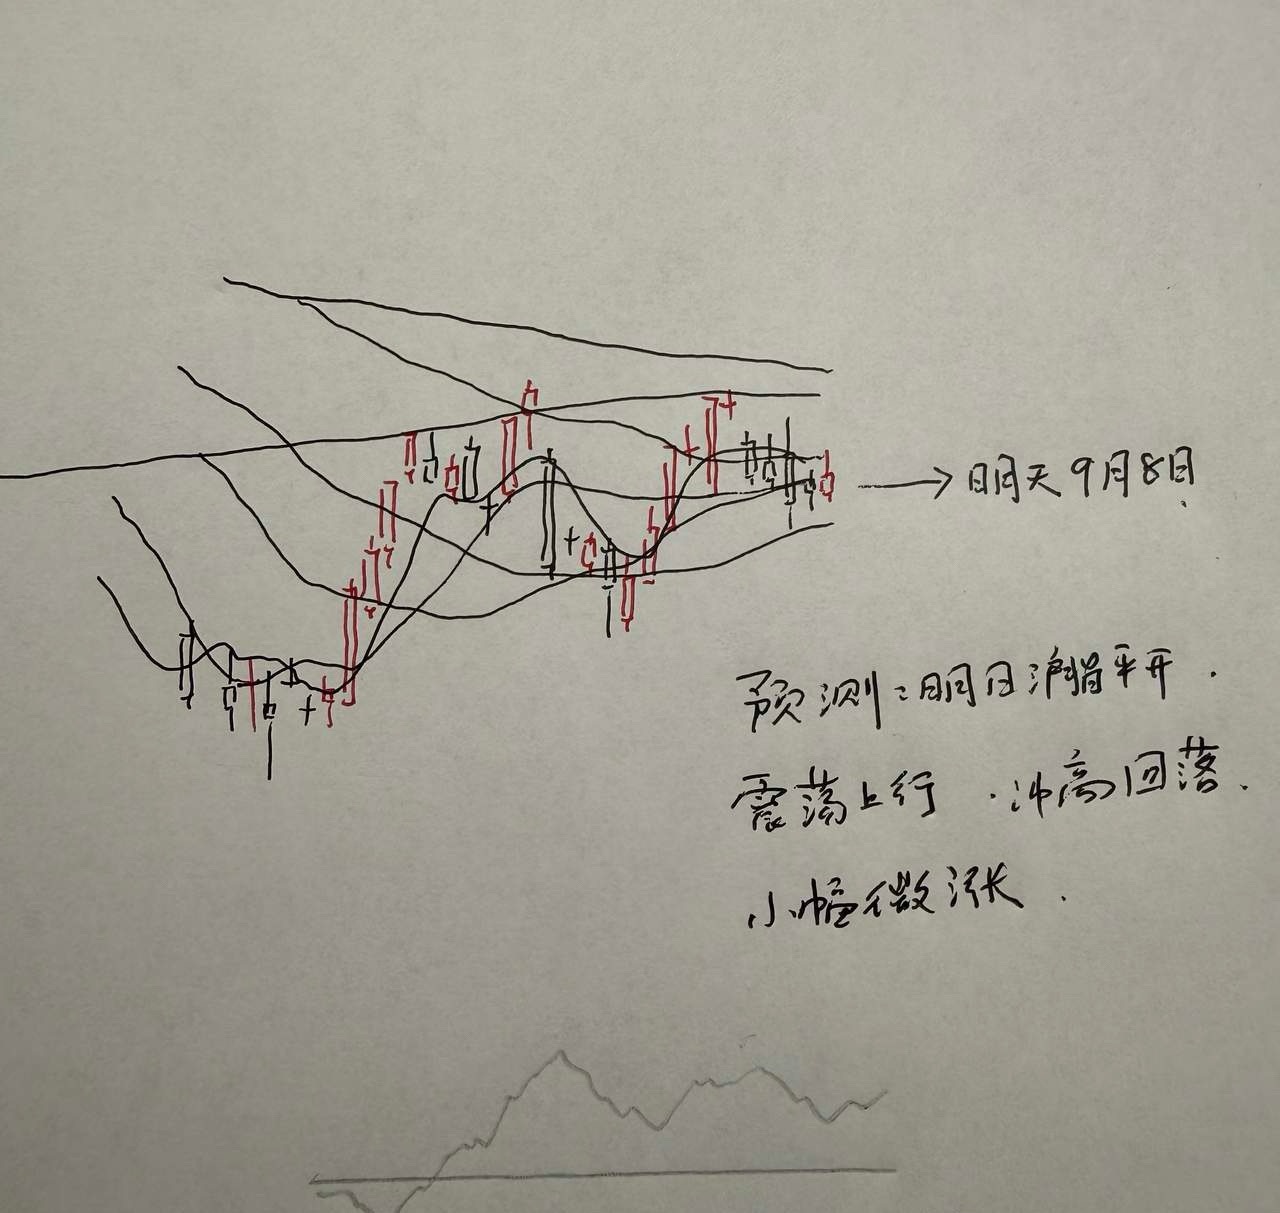 明天9月8日
预测：明日沪指平开．
震荡上行．冲高回落．
小幅微涨．